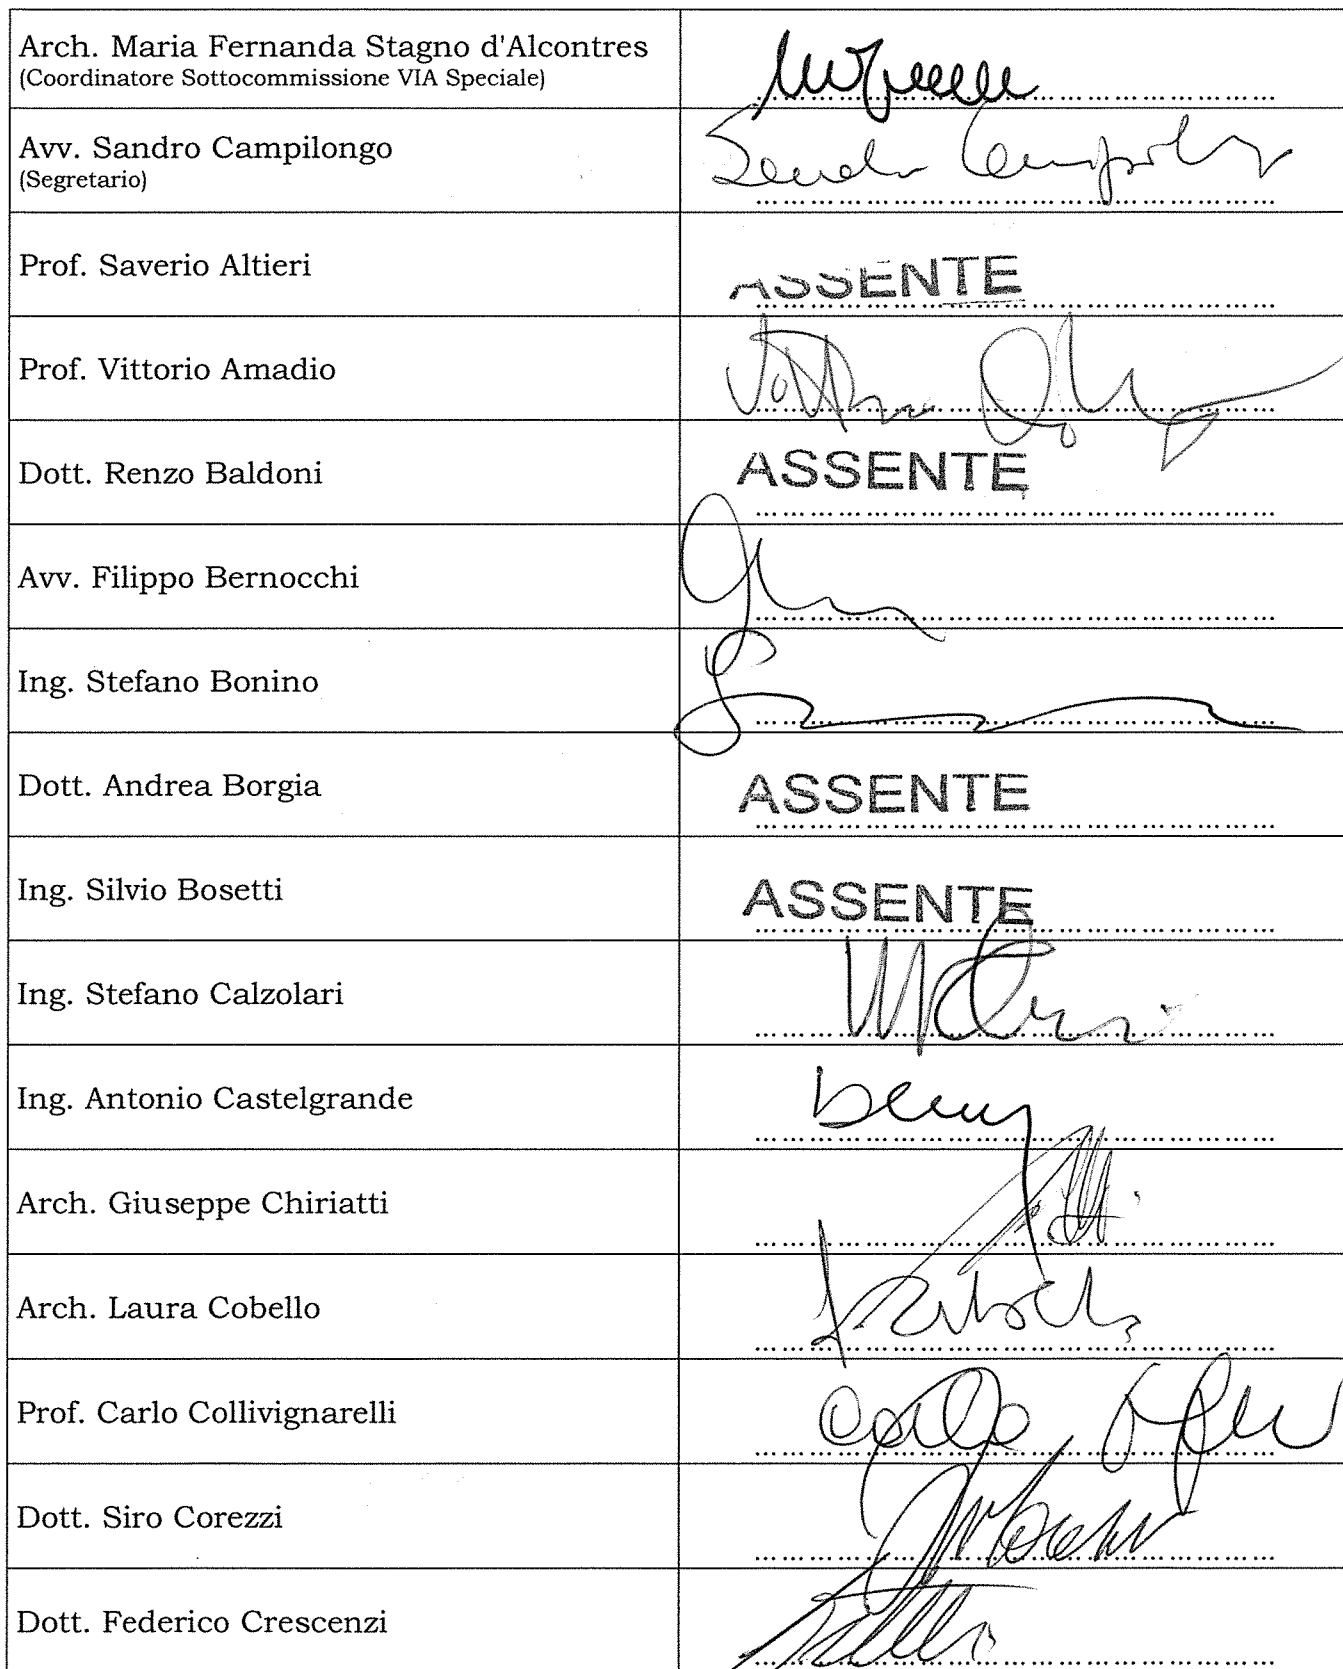 Arch. Maria Fernanda Stagno d'Alcontres
(Coordinatore Sottocommissione VIA Speciale)
Avv. Sandro Campilongo
(Segretario)
Prof. Saverio Altieri
ASSENTE
Prof. Vittorio Amadio
Dott. Renzo Baldoni
ASSENTE
Avv. Filippo Bernocchi
Ing. Stefano Bonino
Dott. Andrea Borgia
ASSENTE
Ing. Silvio Bosetti
ASSENTE
Ing. Stefano Calzolari
Ing. Antonio Castelgrande
Arch. Giuseppe Chiriatti
Arch. Laura Cobello
Prof. Carlo Collivignarelli
Dott. Siro Corezzi
Dott. Federico Crescenzi